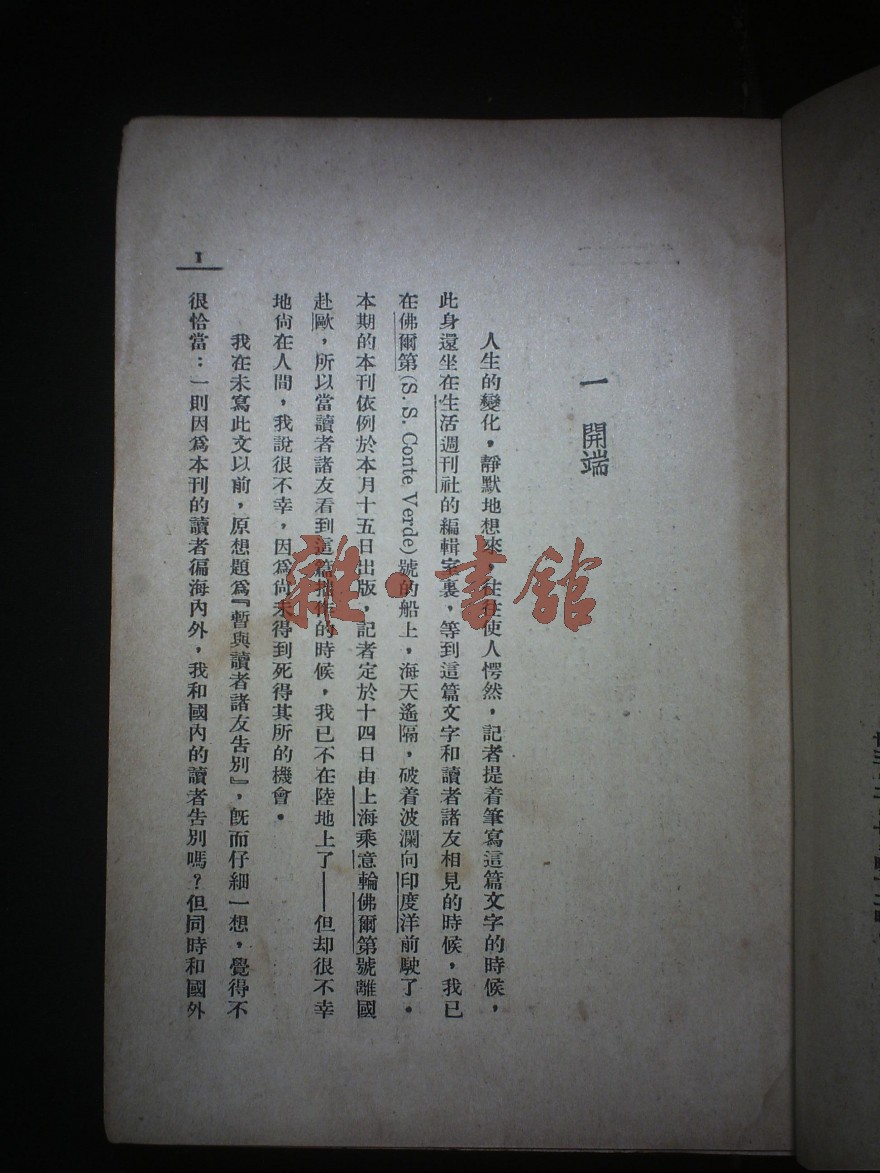 一 開端
人生的變化，靜默地想來，往往使人愕然，記者提着筆寫這篇文字的時候，
此身還坐在生活週刊社的編輯室裏，等到這篇文字和讀者諸友相見的時候，我已
在佛爾第(S. S. Conte Verde)號的船上，海天遙隔，破着波瀾向印度洋前駛了。
本期的本刊依例於本月十五日出版，記者定於十四日由上海乘意輪佛爾第號離國
赴歐，所以當讀者諸友看到這篇拙作的時候，我已不在陸地上了——但却很不幸
地尙在人間，我說很不幸，因爲尙未得到死得其所的機會。
我在未寫此文以前，原想題爲『暫與讀者諸友告別』，旣而仔細一想，覺得不
很恰當：一則因爲本刊的讀者徧海內外，我和國內的讀者告別嗎？但同時和國外
1
雜·書館